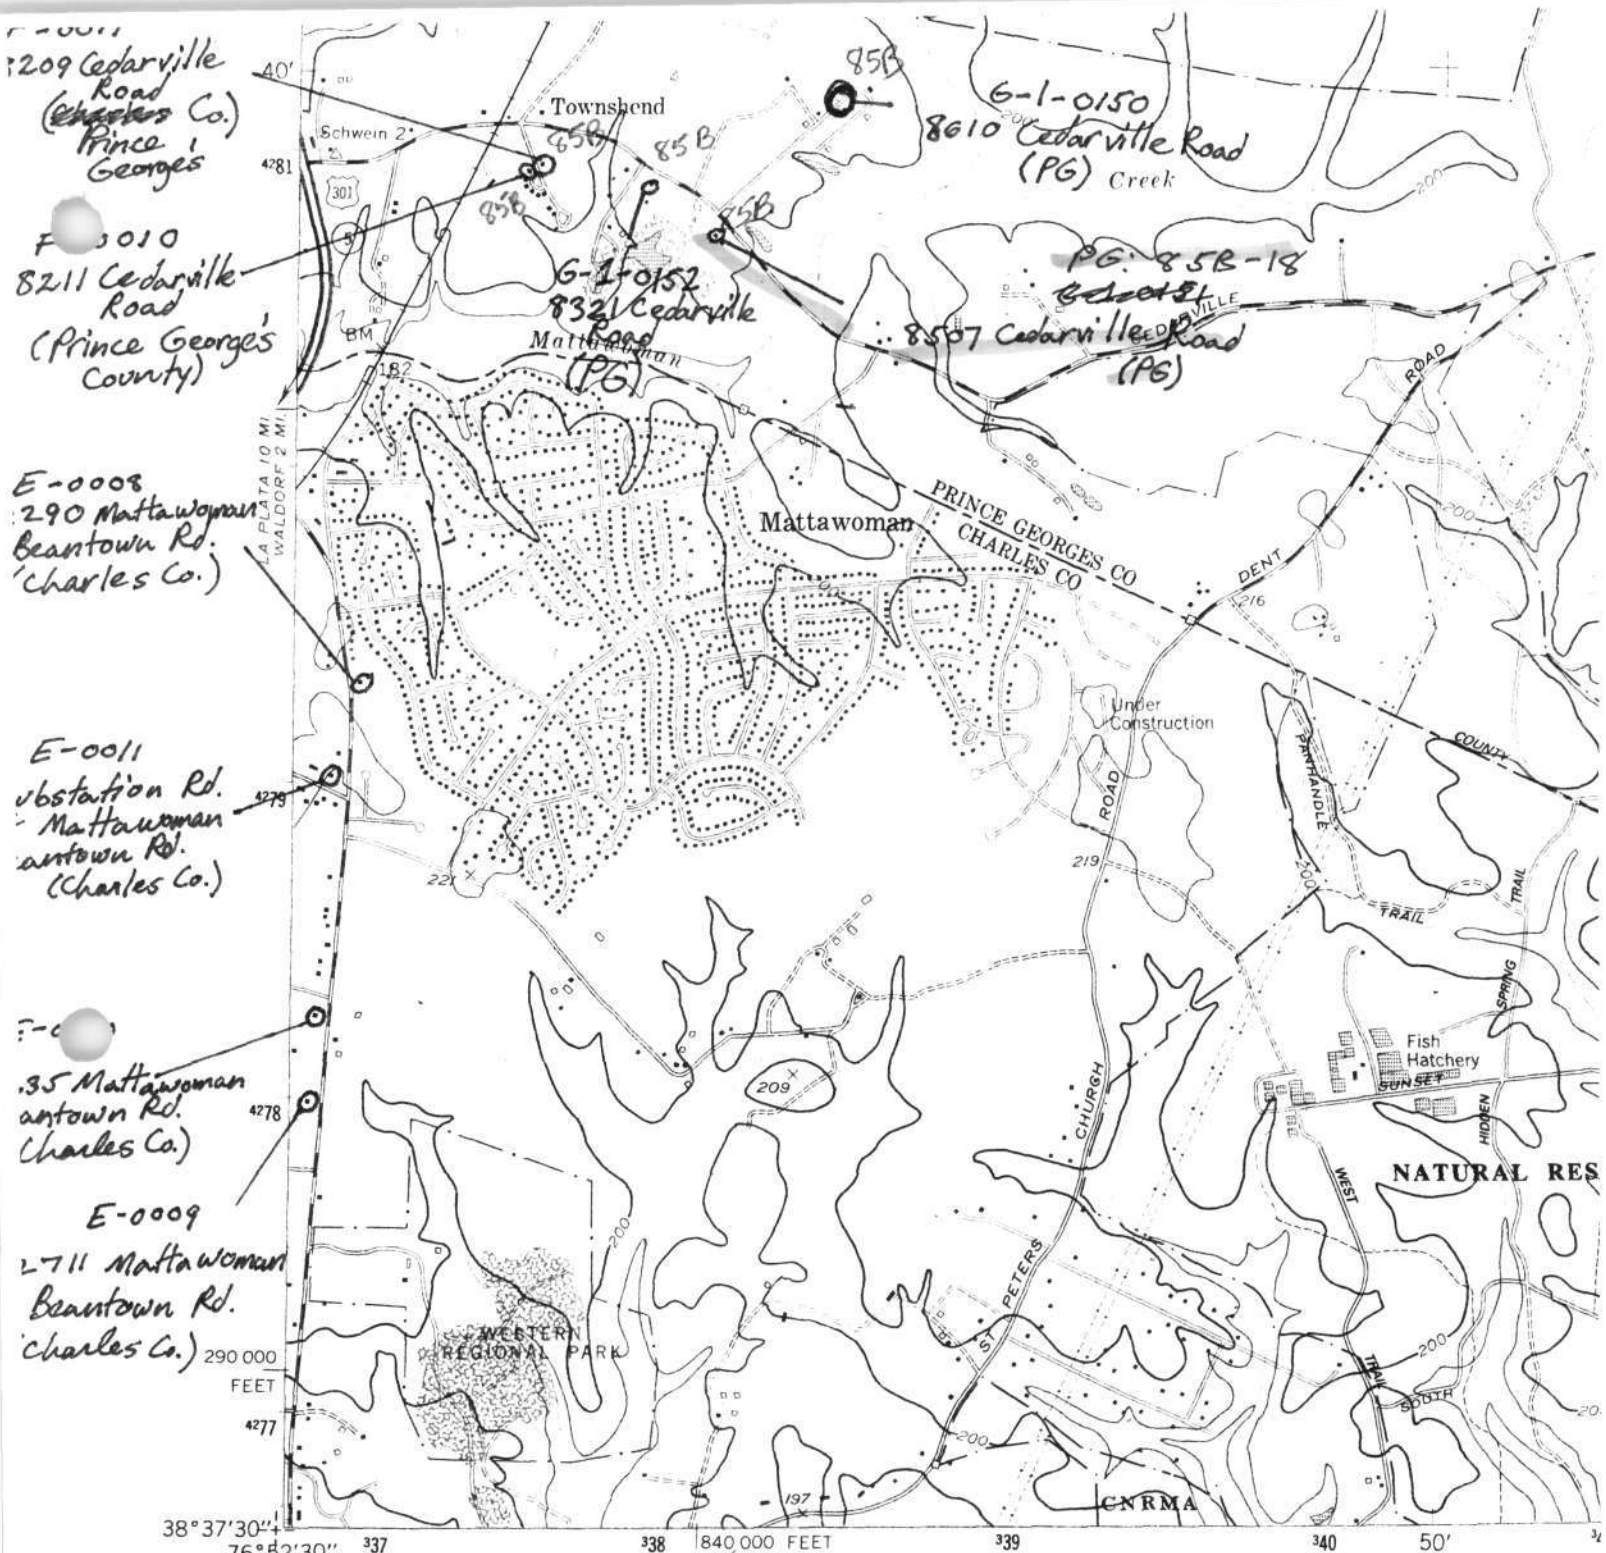 209 Cedarville
Road
Co.)
Prince
George's
0010
8211 Cedarville
Road
(Prince George's
County)
E-0008
290 Mattawoman
Beantown Rd.
Charles Co.)
E-0011
ubstation Rd.
Mattawoman
antown Rd.
(Charles Co.)
.35 Mattawoman
antown Rd.
Charles Co.)
E-0009
2711 Mattawoman
Beantown Rd.
Charles Co.)
40'
Townshend
Schwein 2
4281
301
5
85B
85B
85B
85B
85B
G-1-0150
8610 Cedarville Road
(PG)
Creek
200
200
G-1-0152
8321 Cedarville
Road
(PG)
Mattawoman
PG: 85B-18
8507 Cedarville Road
(PG)
CEDARVILLE
ROAD
BM
182
LA PLATA 10 MI.
WALDORF 2 MI.
Mattawoman
PRINCE GEORGES CO
CHARLES CO
DENT
216
200
200
Under
Construction
COUNTY
PANHANDLE
ROAD
4279
221
219
200
TRAIL
TRAIL
SPRING
Fish
Hatchery
SUNSET
HIDDEN
209
CHURCH
4278
WEST
NATURAL RES
200
PETERS
ST
WESTERN
REGIONAL PARK
290 000
FEET
4277
200
TRAIL
SOUTH
200
20
197
CNRMA
38°37'30"
76°52'30"
337
338
840,000 FEET
339
340
50'